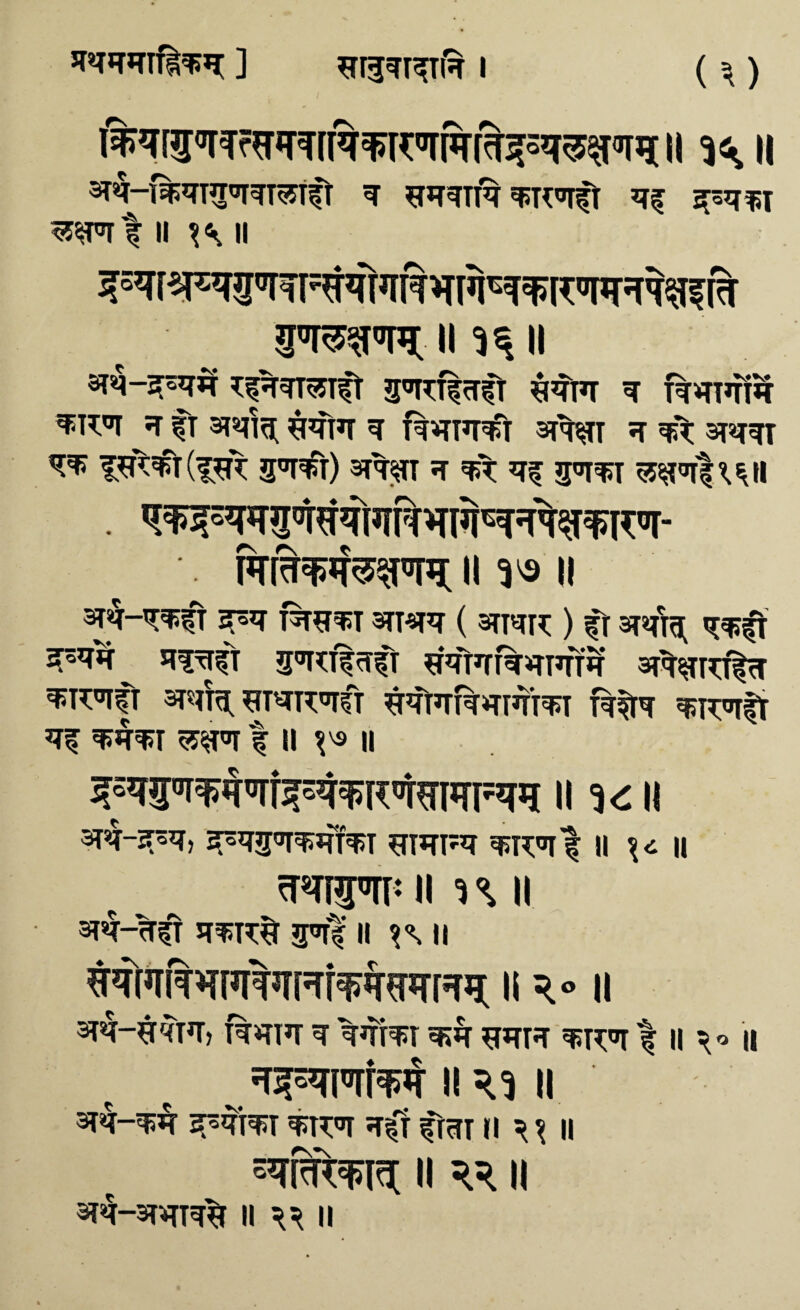 प्रथमाह्निकम् ] भाषानुवादसहित । ( ३ )
क्रियागुणवत्समवायिकारणमितिद्रव्यलक्षणम् ॥ १५ ॥
अर्थ-क्रियागुणवालाहो व समवायि कारणहो यह द्रव्यका
लक्षण है ॥ १५ ॥
द्रव्याश्रय्यगुणवान्संयोगविभागेष्वकारणमनपेक्षइति
गुणलक्षणम् ॥ १६ ॥
अर्थ-द्रव्यमें रहनेवालाहो गुणरहितहो संयोग व विभागोंमें
कारण न हो अर्थात् संयोग व विभागकी अपेक्षा न करै अथवा
एक दूसरेकी(दूसरे गुणकी) अपेक्षा न करै यह गुणका लक्षणहै१६॥
एकद्रव्यमगुणंसंयोगविभागेष्वनपेक्षकारण-
मितिकर्मलक्षणम् ॥ १७ ॥
अर्थ-एकही द्रव्य जिसका आश्रय ( आधार ) हो अर्थात् एकही
द्रव्यमें रहताहो गुणरहितहो संयोगविभागोंमें अपेक्षारहित
कारणहो अर्थात् साधारणहो संयोगविभागोंका विशेष कारणहो
यह कर्मका लक्षण है ॥ १७ ॥
द्रव्यगुणकर्मणांद्रव्यंकारणंसामान्यम् ॥ १८ ॥
अर्थ-द्रव्य, द्रव्यगुणकर्मोंका सामान्य कारणहै ॥ १८ ॥
तथागुणः ॥ १९ ॥
अर्थ-तैसेही प्रकारसे गुणहै ॥ १९ ॥
संयोगविभागवेगानांकर्मसमानम् ॥ २० ॥
अर्थ-संयोग, विभाग व वेगोंका कर्म समान कारण है ॥ २० ॥
नद्रव्याणांकर्म ॥ २१ ॥
अर्थ-कर्म द्रव्योंका कारण नहीं होता ॥ २१ ॥
व्यतिरेकात् ॥ २२ ॥
अर्थ-अभावसे ॥ २२ ॥